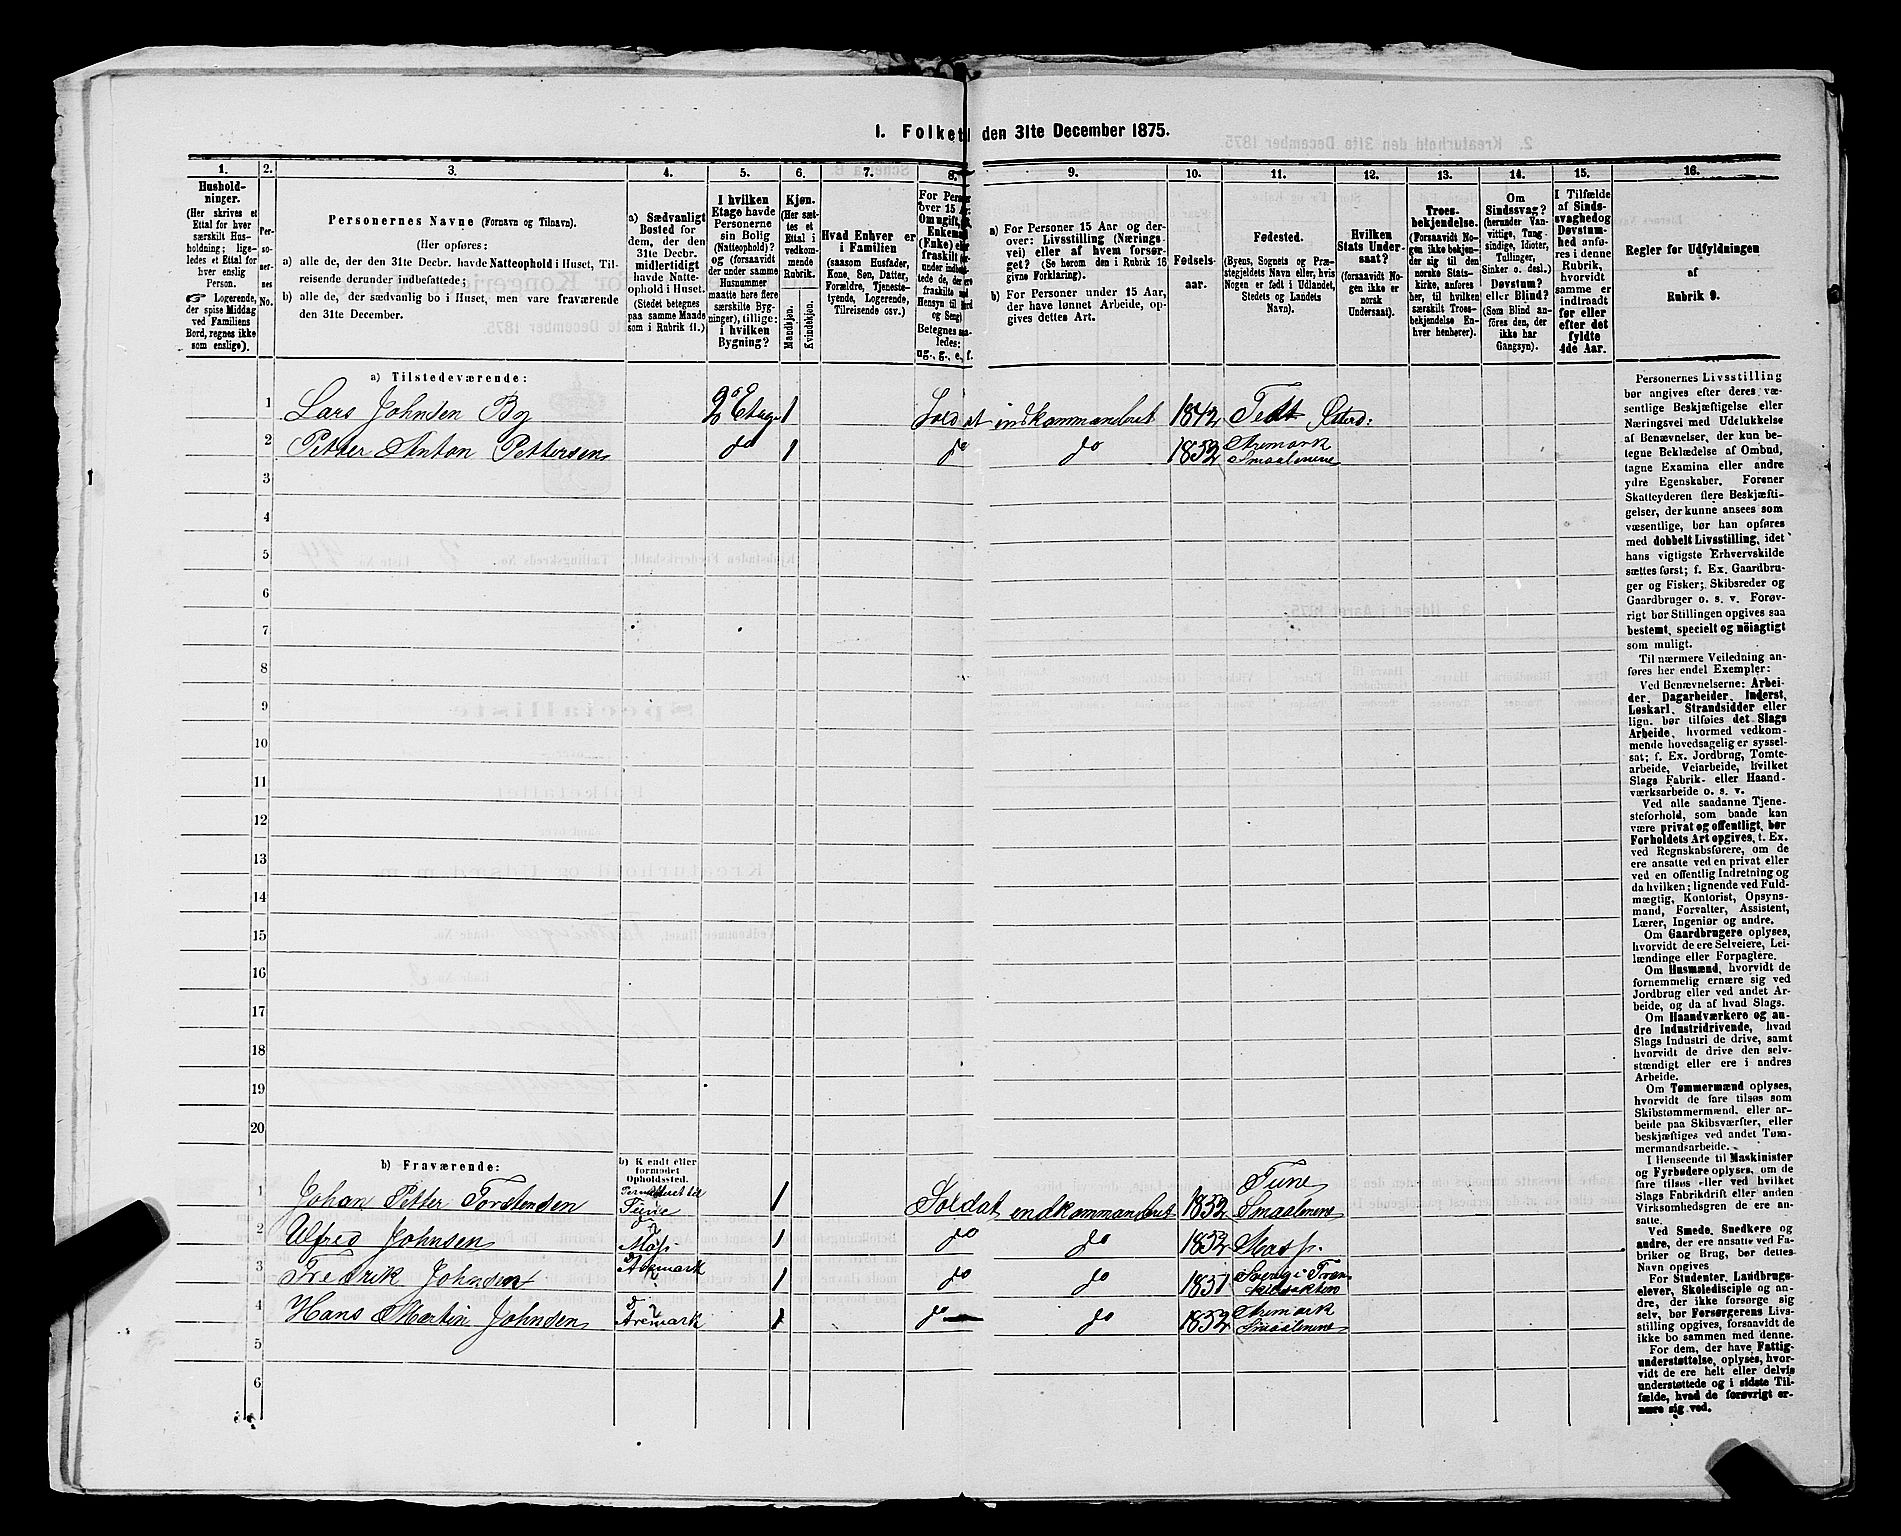 1. Folket den 31te December 1875.
1.
Hushold-
ninger.
(Her skrives et
Ettal for hver
særskilt Hus-
holdning; lige-
ledes et Ettal for
hver enslig
Person.
☞ Logerende,
der spise Middag
ved Familiens
Bord, regnes ikke
som enslige).
2.
Per-
so-
ner-
nes
No.
3.
Personernes Navne (Fornavn og Tilnavn).
(Her opføres:
a) alle de, der den 31te Decbr. havde Natteophold i Huset, Til-
reisende derunder indbefattede;
b) alle de, der sædvanlig bo i Huset, men vare fraværende
den 31te December.
4.
a) Sædvanligt
Bosted for
dem, der den
31te Decbr.
midlertidigt
havde Natte-
ophold i Huset.
(Stedet betegnes
paa samme Maade
som i Rubrik 11.)
5.
I hvilken
Etage havde
Personerne
sin Bolig
(Natteophold)?
og (forsaavidt
der under samme
Husnummer
maatte høre flere
særskilte Byg-
ninger), tillige:
i hvilken
Bygning?
6.
Kjøn.
(Her sæt-
tes et
Ettal i
vedkom-
mende
Rubrik.
Mandkjøn.
Kvindekjøn.
7.
Hvad Enhver er
i Familien
(saasom Husfader,
Kone, Søn, Datter,
Forældre, Tjeneste-
tyende, Logerende,
Tilreisende osv.)
8.
For Pers
over 15
Om ugift,
Enkem
(Enke) el
fraskilt
Betegnes
ledes:
ug., g., e, f.
9.
a) For Personer 15 Aar og der-
over: Livsstilling (Nærings-
vei) eller af hvem forsør-
get? (Se herom den i Rubrik 16
givne Forklaring).
b) For Personer under 15 Aar,
der have lønnet Arbeide, op-
gives dettes Art.
10.
Fødsels-
aar.
11.
Fødested.
(Byens, Sognets og Præ-
stegjeldets Navn eller, hvis
Nogen er født i Udlandet,
Stedets og Landets
Navn).
12.
Hvilken
Stats Under-
saat?
(forsaavidt No-
gen ikke er
norsk
Undersaat).
13.
Troes-
bekjendelse.
(Forsaavidt No-
gen ikke bekjen-
der sig til den
norske Stats-
kirke, anføres
her, til hvilken
særskilt Troes-
bekjendelse En-
hver henhører).
14.
Om
Sindssvag?
(herunder Van-
vittige, Tung-
sindige, Idioter,
Tullinger,
Sinker o. desl.)
Døvstum?
eller Blind?
(Som Blind an-
føres den, der
ikke har
Gangsyn).
15.
I Tilfælde
af Sinds-
svaghed og
Døvstum-
hed anfø-
res i denne
Rubrik,
hvorvidt
samme er
indtraadt
før eller
efter det
fyldte
4de Aar.
16.
Regler for Udfyldningen
af
Rubrik 9.
a) Tilstedeværende:
1 Lars Johnsen By 2 Etage 1 Soldat indkommanderet 1842
2 Petter Anton Pettersen do 1 do do 1852 Aremark Smaalenene
3
4
5
6
7
8
9
10
11
12
13
14
15
16
17
18
19
20
b) Fraværende:
b) Kjendt eller
formodet
Opholdssted.
1 Johan Petter Torstensen Permitteret til Tune 1 Soldat endkommanderet 1852 Tune Smaalenene
2 Alfred Johnsen do Moss 1 do do 1852 Moss.
3 Fredrik Johnsen Aremark 1 do do 1851
4 Hans Martin Johnsen do Aremark 1 do do 1852 Aremark Smaalenene
5
6
Personernes Livsstilling
bør angives efter deres væ-
sentlige Beskjæftigelse eller
Næringsvei med Udelukkelse
af Benævnelser, der kun be-
tegne Beklædelse af Ombud,
tagne Examina eller andre
ydre Egenskaber. Forener
Skatteyderen flere Beskjæfti-
gelser, der kunne ansees som
væsentlige, bør han opføres
med dobbelt Livsstilling, idet
hans vigtigste Erhvervskilde
sættes først; f. Ex. Gaardbru-
ger og Fisker; Skibsreder og
Gaardbruger o. s. v. Forøv-
rigt bør Stillingen opgives saa
bestemt, specielt og nöiagtigt
som muligt.
Til nærmere Veiledning an-
føres her endel Exempler:
Ved Benævnelserne: Arbei-
der, Dagarbeider, Inderst,
Løskarl, Strandsidder eller
lign. bør tilføies det Slags
Arbeide, hvormed vedkom-
mende hovedsagelig er syssel-
sat; f. Ex. Jordbrug, Tomte-
arbeide, Veiarbeide, hvilket
Slags Fabrik- eller Haand-
værksarbeide o. s. v.
Ved alle saadanne Tjene-
steforhold, som baade kan
være privat og offentligt, bør
Forholdets Art opgives, t. Ex.
ved Regnskabsførere, om de
ere ansatte ved en privat eller
ved en offentlig Indretning og
da hvilken; lignende ved Fuld-
mægtig, Kontorist, Opsyns-
mand, Forvalter, Assistent,
Lærer, Ingeniør og andre.
Om Gaardbrugere oplyses,
hvorvidt de ere Selveiere, Lei-
lændinge eller Forpagtere.
Om Husmænd, hvorvidt de
fornemmelig ernære sig ved
Jordbrug eller ved andet Ar-
beide, og da af hvad Slags.
Om Haandværkere og an-
dre Industridrivende, hvad
Slags Industri de drive, samt
hvorvidt de drive den selv-
stændigt eller ere i andres
Arbeide.
Om Tømmermænd oplyses,
hvorvidt de fare tilsøs som
Skibstømmermænd, eller ar-
beide paa Skibsværfter, eller
beskjæftiges ved andet Tøm-
mermandsarbeide.
I Henseende til Maskinister
og Fyrbødere oplyses, om de
fare tilsøs eller ved hvilket
Slags Fabrikdrift eller anden
Virksomhedsgren de ere an-
satte.
Ved Smede, Snedkere og
andre, der ere ansatte ved Fa-
briker og Brug, bør dettes
Navn opgives
For Studenter, Landbrugs-
elever, Skoledisciple og an-
dre, der ikke forsørge sig
selv, bør Forsørgerens Livs-
stilling opgives, forsaavidt de
ikke bo sammen med denne.
For dem, der have Fattig-
understøttelse, oplyses, hvor-
vidt de ere helt eller delvis
understøttede og i sidste Til-
fælde, hvad de forøvrigt er-
nære sig ved.